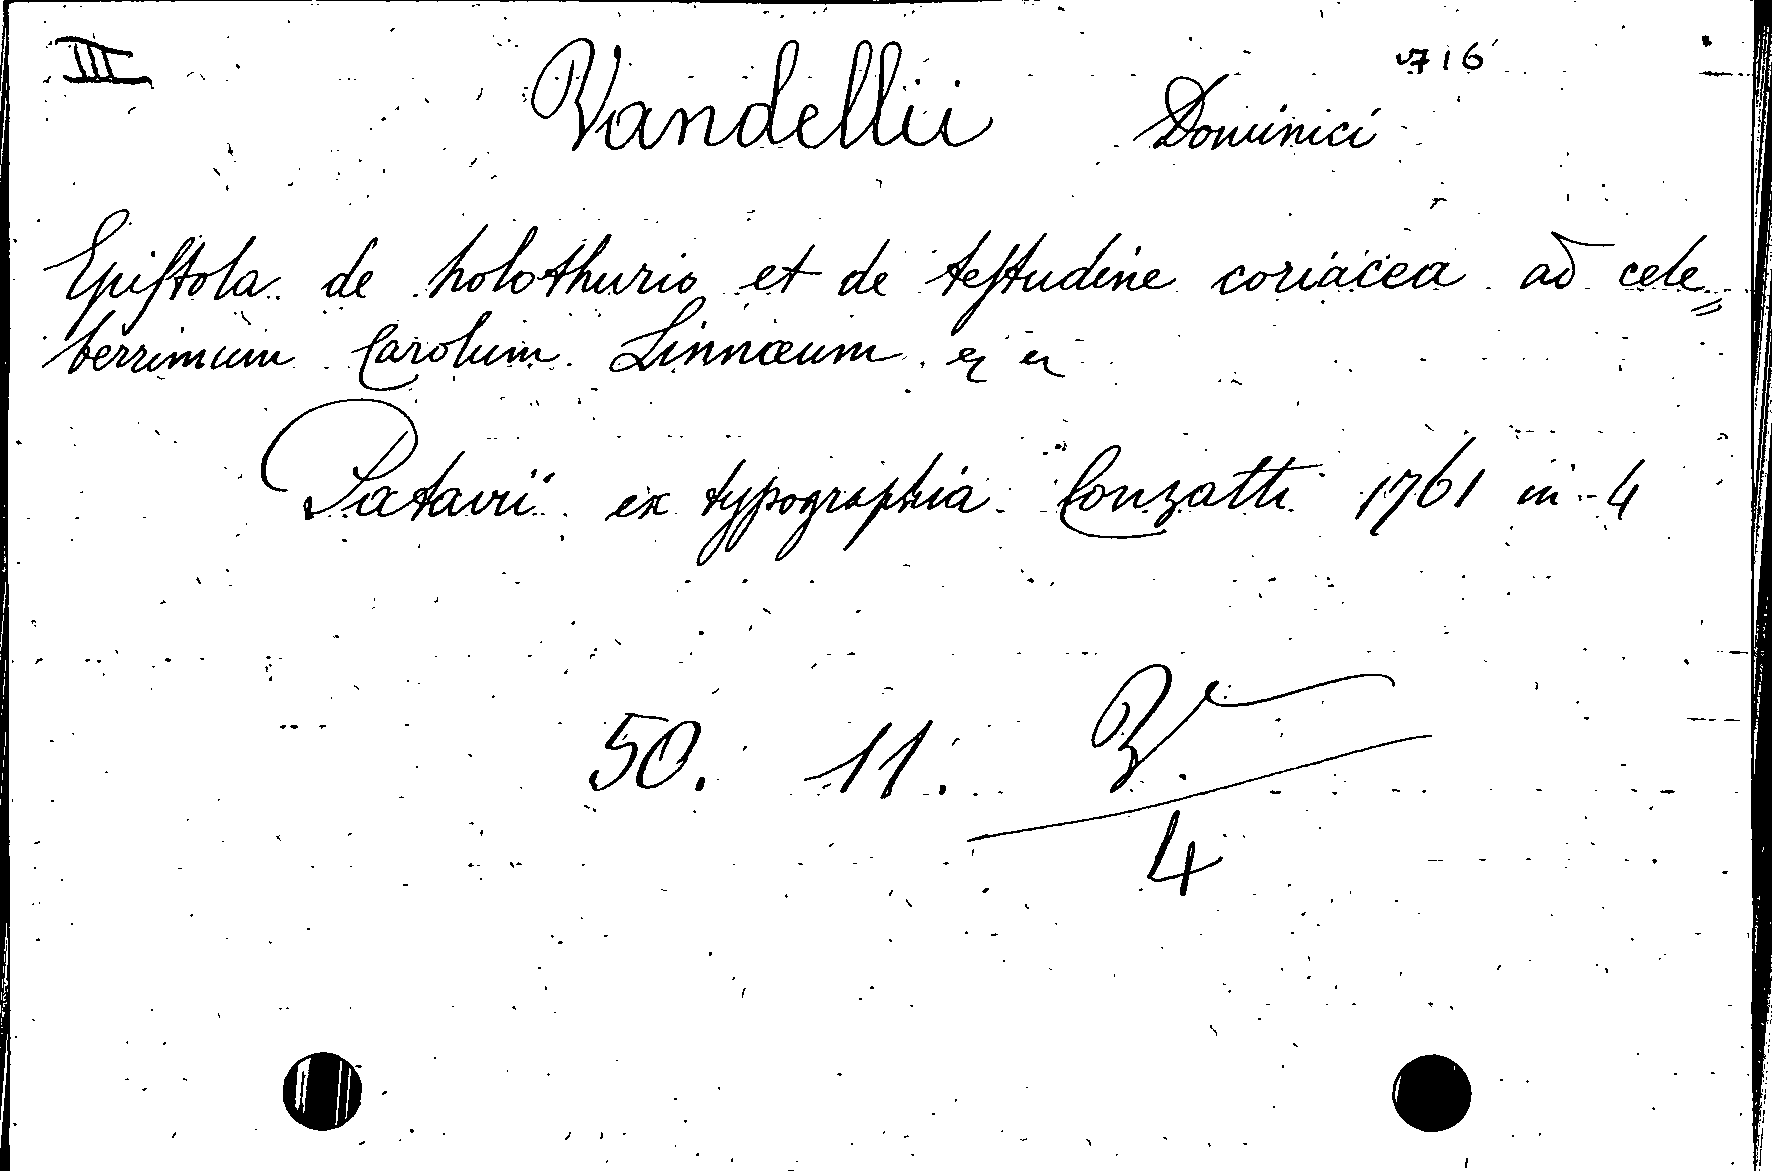 III
716
Vandellii Dominici
Epistola de holothurio et de testudine coriacea ad cele=
berrimum Carolum Linnæum
Patavii ex typographia Conzatti 1761 in-4
50. 11. V.
4